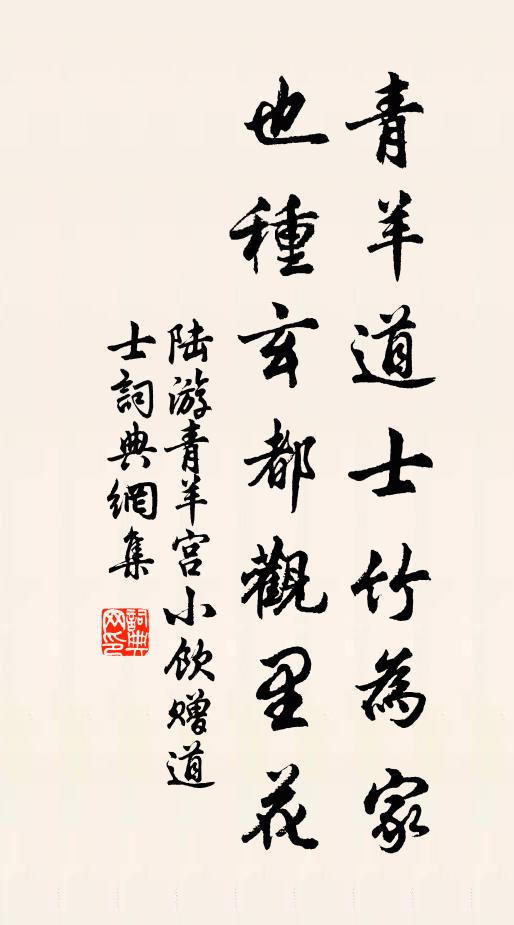 青羊道士竹為家
也種玄都觀里花
陆游青羊宫小飲赠道
士詞典網集
詞典網印